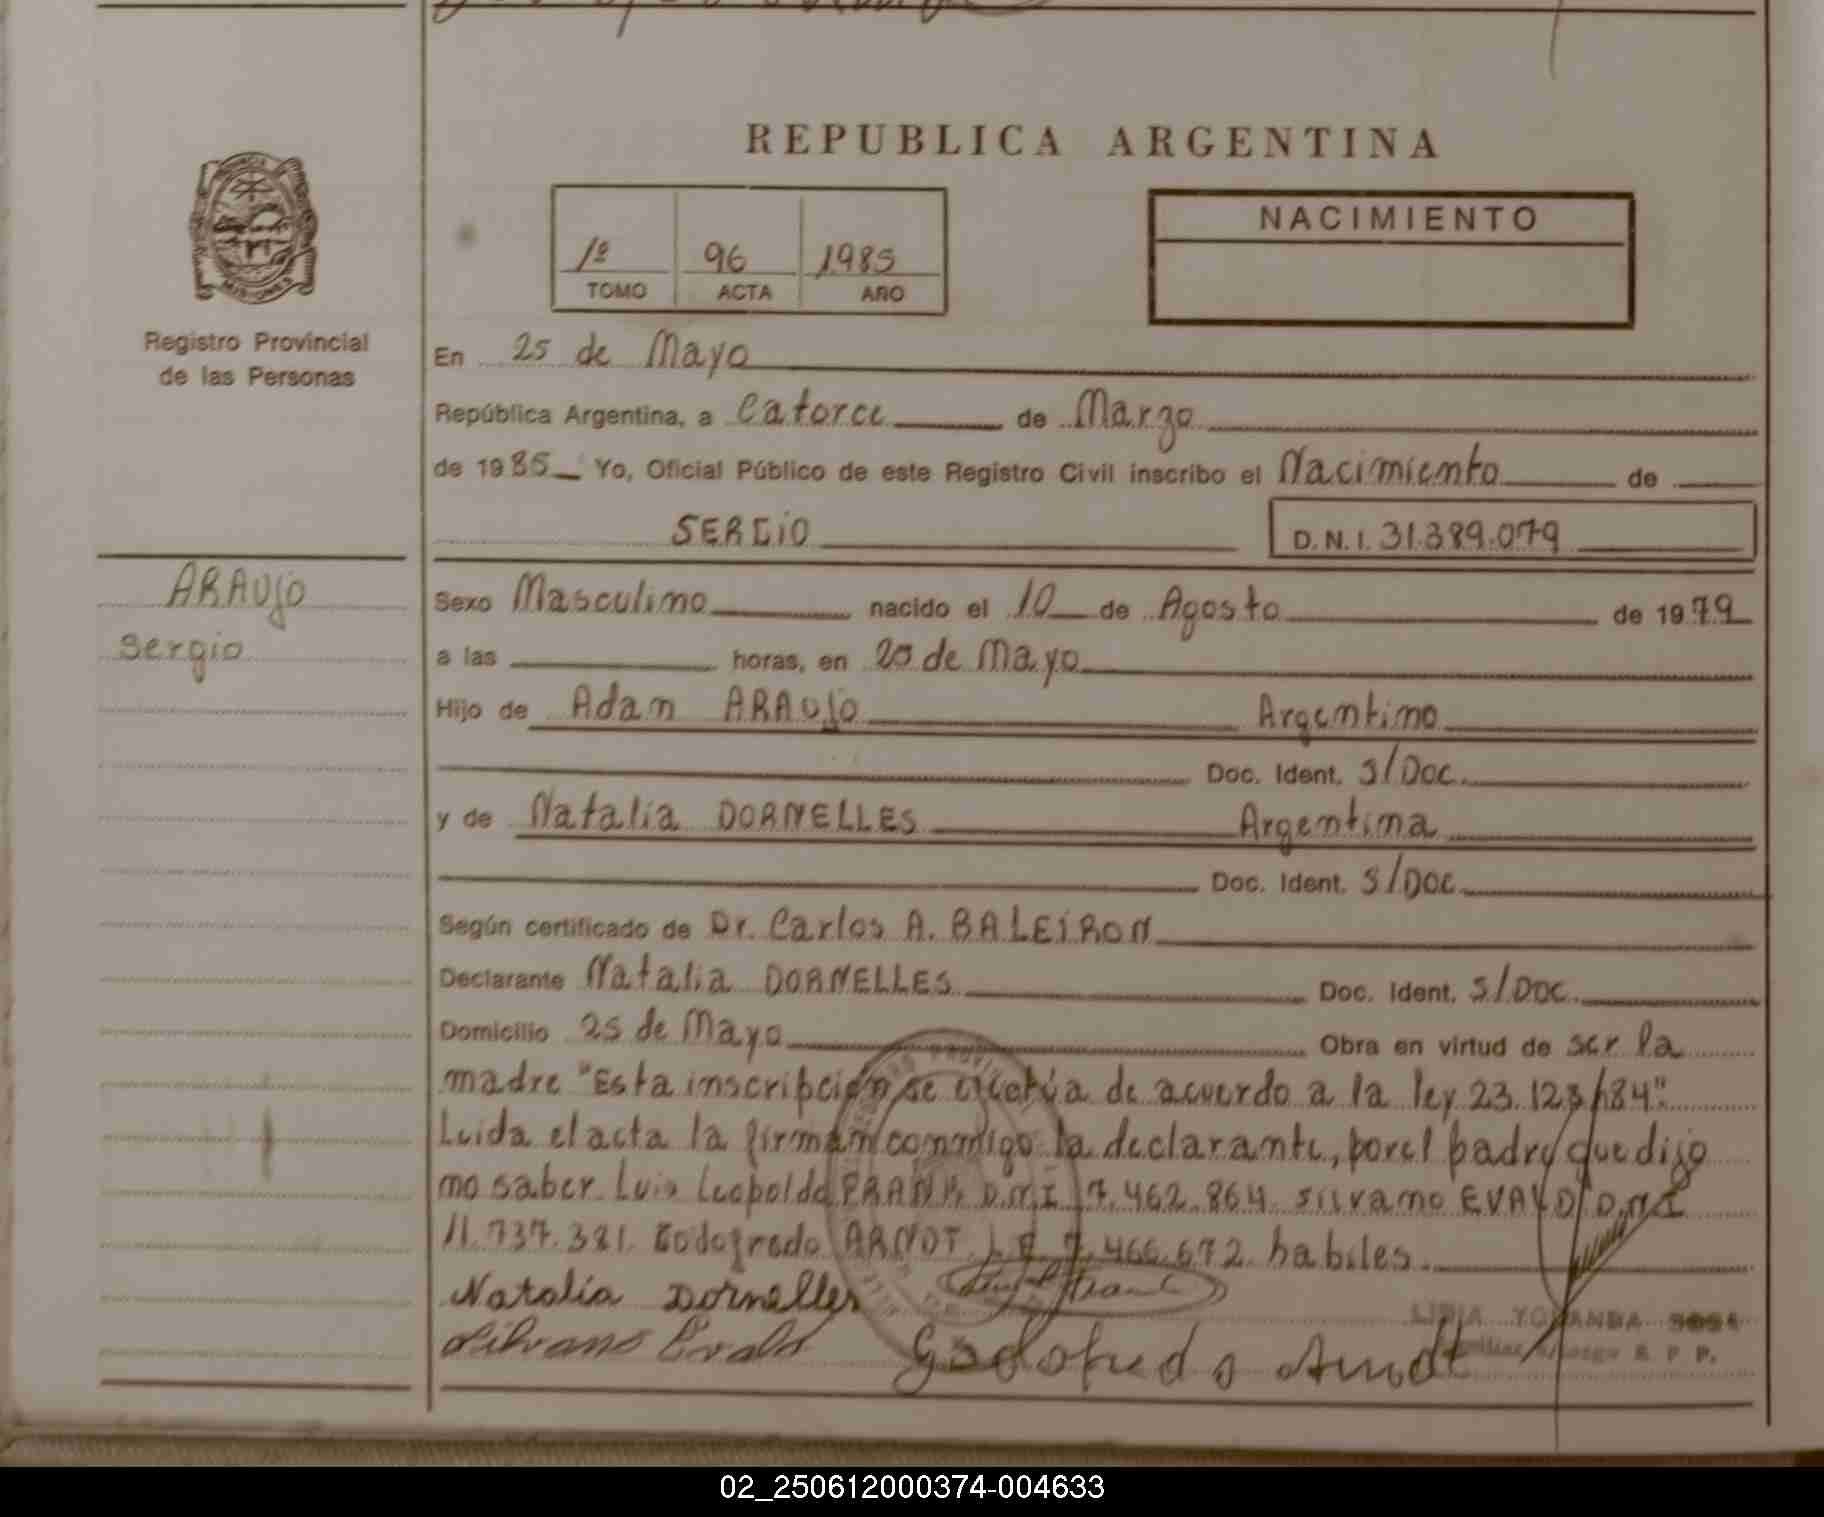 REPUBLICA ARGENTINA
PROVINCIA
MISIONES
Registro Provincial
de las Personas
1º 96 1985
TOMO ACTA AÑO
NACIMIENTO
En 25 de Mayo
República Argentina, a Catorce de Marzo
de 1985 Yo, Oficial Público de este Registro Civil inscribo el Nacimiento de
SERGIO D.N.I. 31.389.079
ARAUJO
Sergio
Sexo Masculino nacido el 10 de Agosto de 1979
a las horas, en 25 de Mayo
Hijo de Adan ARAUJO Argentino
Doc. Ident. S/Doc.
y de Natalia DORNELLES Argentina
Doc. Ident. S/Doc
Según certificado de Dr. Carlos A. BALEIRON
Declarante Natalia DORNELLES Doc. Ident. S/Doc.
Domicilio 25 de Mayo Obra en virtud de ser la
madre "Esta inscripción se efectúa de acuerdo a la ley 23.123/84".
Leida el acta la firman conmigo la declarante, por el padre que dijo
no saber Luis Leopoldo D.N.I 7.462.864 Silvano EVALD D.N.I
11.737.381. Godofredo ARNDT L.E 7.466.672 habiles.
Natalia Dornelles
Silvano Evald Godofredo Arndt
LIDIA YOLANDA
R P P.
02_250612000374-004633